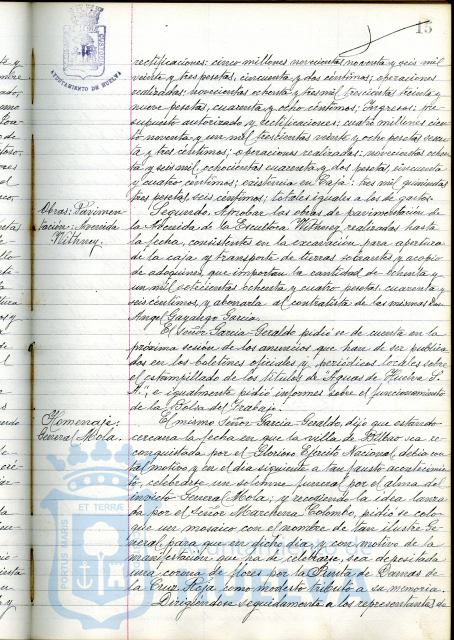 15
AYUNTAMIENTO DE HUELVA
rectificaciones: cinco millones novecientas noventa y seis mil
veinte y tres pesetas, cincuenta y dos céntimos; operaciones
realizadas: novecientas ochenta y tres mil trescientas treinta y
nueve pesetas, cuarenta y ocho céntimos; Ingresos: Pre
supuesto autorizado y rectificaciones: cuatro millones cien
to noventa y un mil trescientas veinte y ocho pesetas
y tres céntimos; operaciones realizadas: novecientas ochen
ta y seis mil, ochocientas cuarenta y dos pesetas, cincuenta
y cuatro céntimos; existencia en Caja: tres mil quinientas
tres pesetas seis céntimos; totales iguales a los de gastos.
Obras: Pavimen
tación: Avenida
Withney.
Segundo. Aprobar las obras de pavimentación de
la Avenida de la Escultora Withney, realizadas hasta
la fecha, consistentes en la excavación para apertura
de la caja y transporte de tierras sobrantes y acopio
de adoquines, que importan la cantidad de ochenta y
un mil setecientas ochenta y cuatro pesetas cuarenta y
seis céntimos, y abonarla al contratista de las mismas Don
Angel Gayalego García.
El Señor García Geraldo pidió se de cuenta en la
próxima sesión de los anuncios que han de ser publica
dos en los boletines oficiales y periódicos locales sobre
el estampillado de los títulos de "Aguas de Huelva S.
A.", e igualmente pidió informes sobre el funcionamiento
de la Bolsa del Trabajo.
Homenaje:
General Mola.
El mismo Señor García Geraldo, dijo que estando
cercana la fecha en que la villa de Bilbao sea re
conquistada por el Glorioso Ejército Nacional, debía con
tal motivo y en el día siguiente a tan fausto acontecimien
to, celebrarse un solemne funeral por el alma del
invicto General Mola; y recogiendo la idea lanza
da por el Señor Marchena Colombo, pidió se colo
que un mosaico con el nombre de tan ilustre Ge
neral, para que en dicho día y con motivo de la
manifestación que ha de celebrarse, sea depositada
una corona de flores por la Junta de Damas de
la Cruz Roja, como modesto tributo a su memoria.
Dirigiéndose seguidamente a los representantes de
PORTUS MARIS ET TERRÆ
Ayuntamiento de
HUELVA